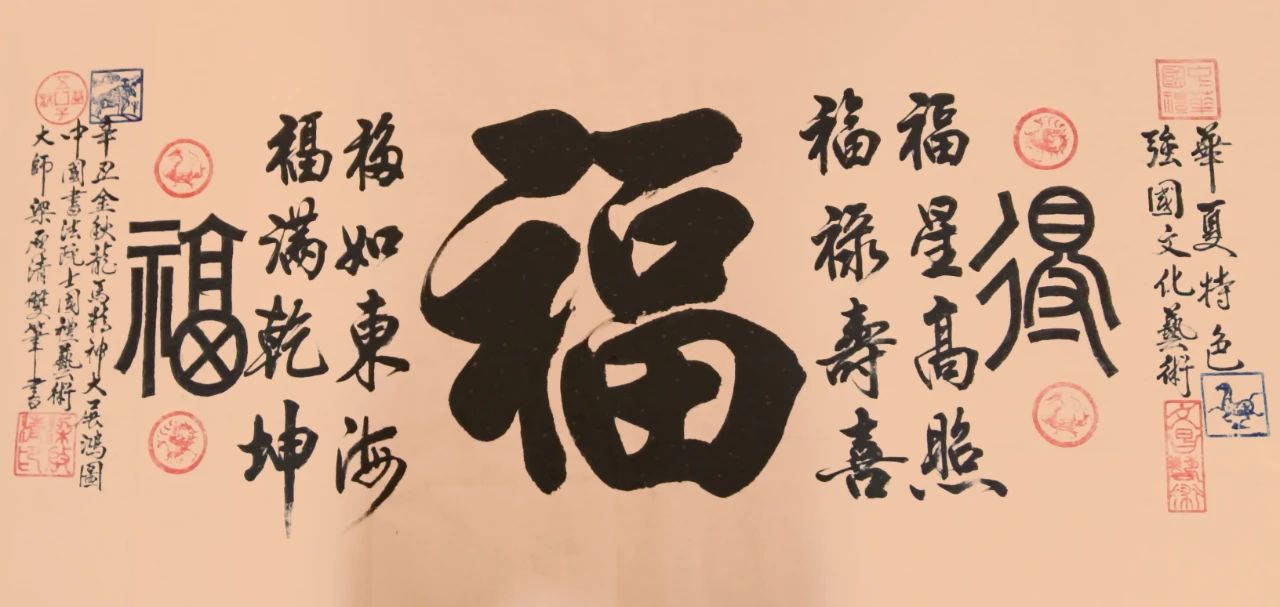 中華國禮
華夏特色
強國文化藝術
得
福星高照
福祿壽喜
福
福如東海
福滿乾坤
福
辛丑金秋龍馬精神大展鴻圖
中國書法院士國禮藝術
大師梁啟清雙筆書